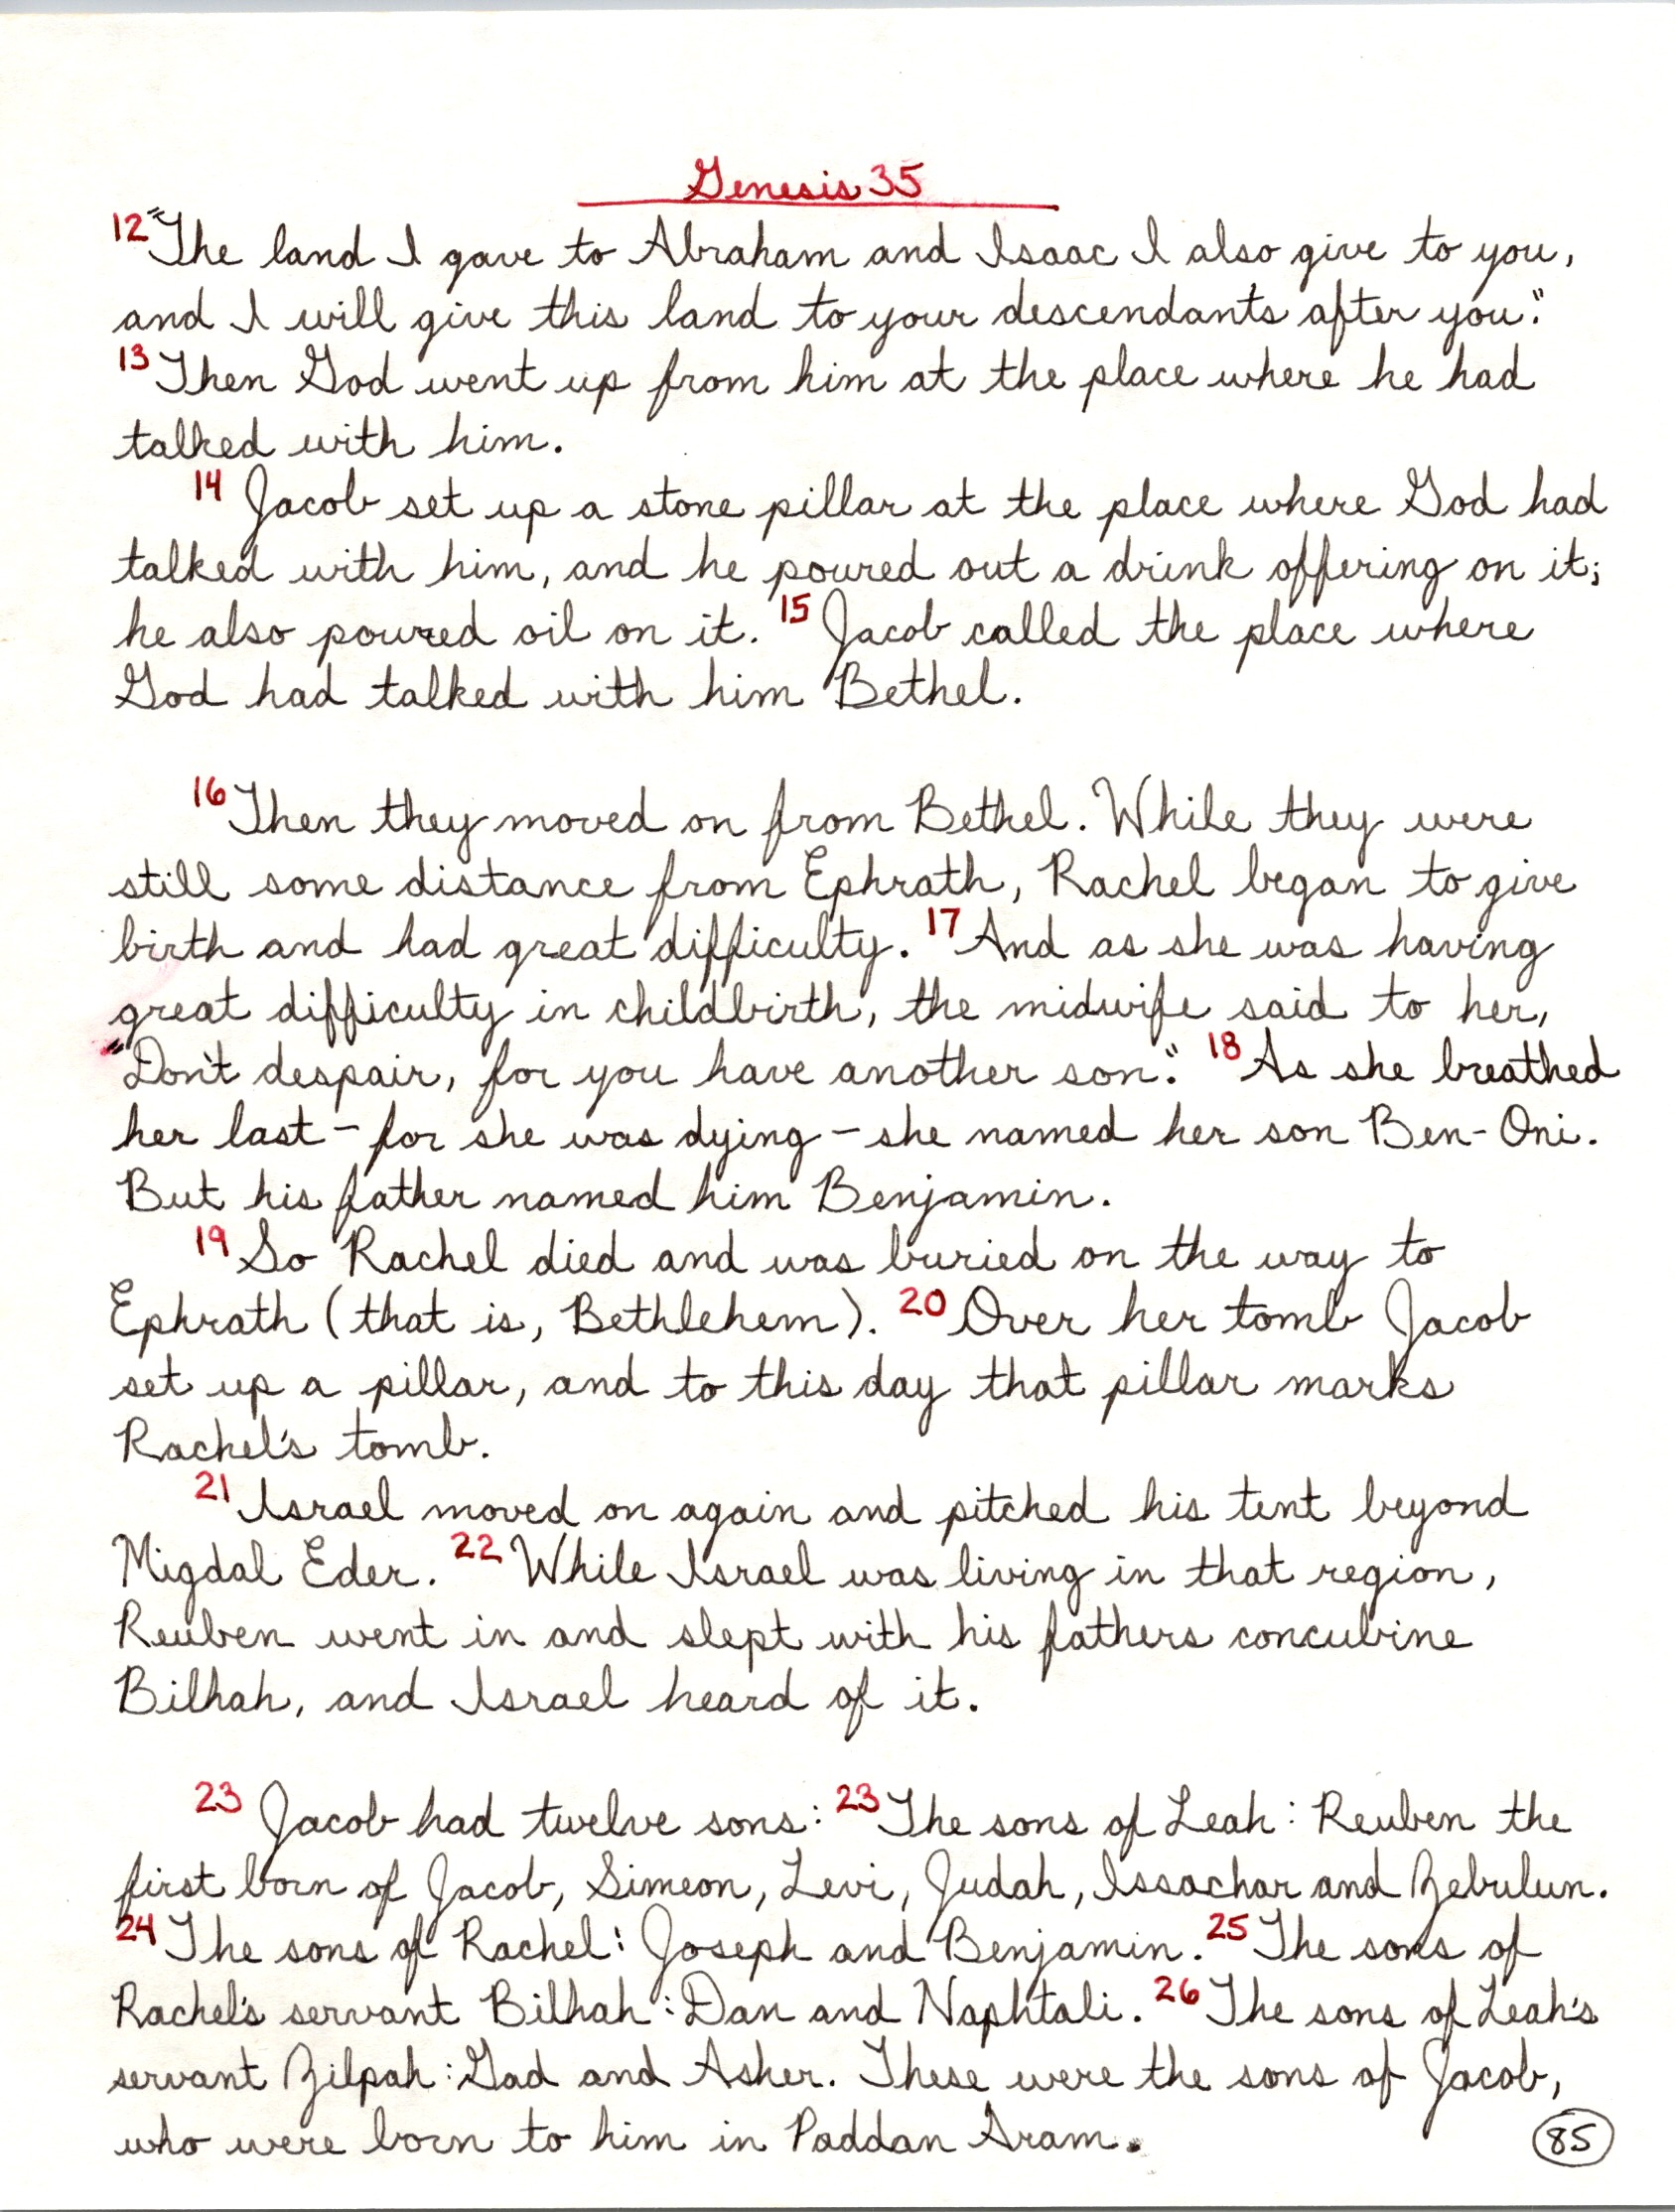 Genesis 35
12 "The land I gave to Abraham and Isaac I also give to you,
and I will give this land to your descendants after you."
13 Then God went up from him at the place where he had
talked with him.
14 Jacob set up a stone pillar at the place where God had
talked with him, and he poured out a drink offering on it;
he also poured oil on it. 15 Jacob called the place where
God had talked with him Bethel.
16 Then they moved on from Bethel. While they were
still some distance from Ephrath, Rachel began to give
birth and had great difficulty. 17 And as she was having
great difficulty in childbirth, the midwife said to her,
"Don't despair, for you have another son." 18 As she breathed
her last - for she was dying - she named her son Ben-Oni.
But his father named him Benjamin.
19 So Rachel died and was buried on the way to
Ephrath (that is, Bethlehem). 20 Over her tomb Jacob
set up a pillar, and to this day that pillar marks
Rachel's tomb.
21 Israel moved on again and pitched his tent beyond
Migdal Eder. 22 While Israel was living in that region,
Reuben went in and slept with his fathers concubine
Bilhah, and Israel heard of it.
23 Jacob had twelve sons: 23 The sons of Leah: Reuben the
first born of Jacob, Simeon, Levi, Judah, Issachar and Zebulun.
24 The sons of Rachel: Joseph and Benjamin. 25 The sons of
Rachel's servant Bilhah: Dan and Naphtali. 26 The sons of Leah's
servant Zilpah: Gad and Asher. These were the sons of Jacob,
who were born to him in Paddan Aram.
85